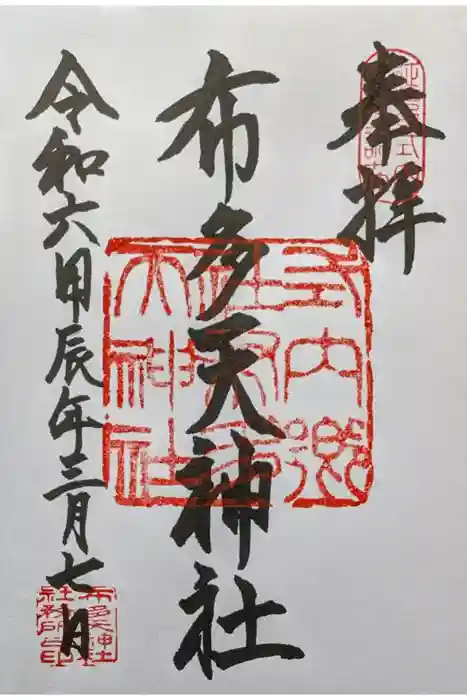 奉拝
布多天神社
令和六甲辰年三月七日
式内郷
社布多
天神社
布多天神社
社務所印